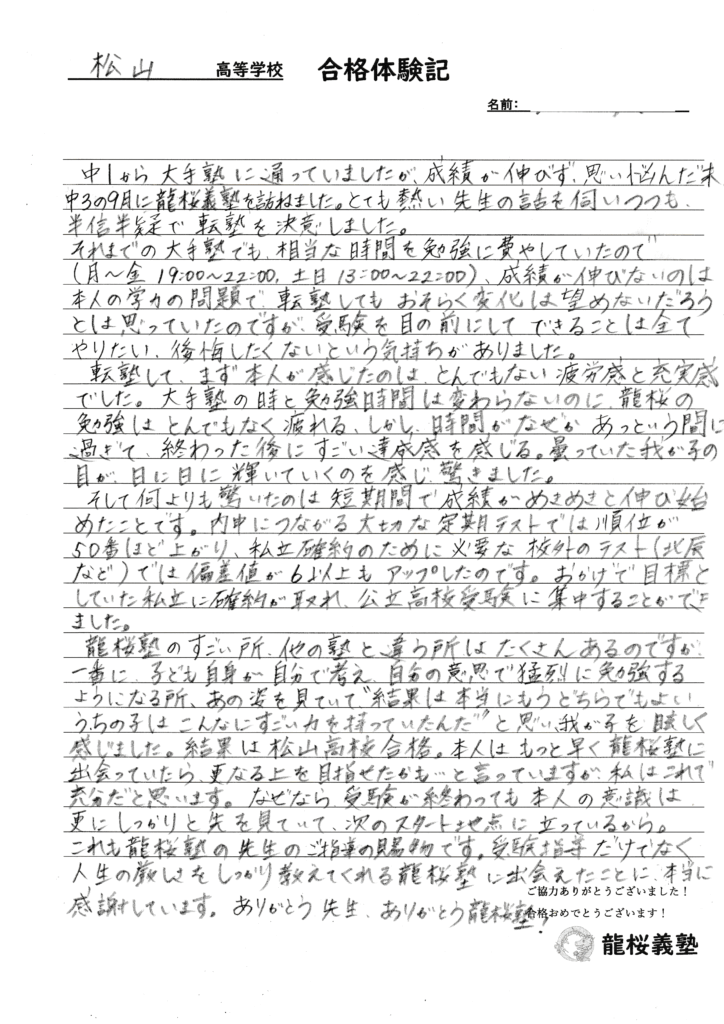 松山 高等学校 合格体験記
名前:
中1から大手塾に通っていましたが、成績が伸びず、思い悩んだ末
中3の9月に龍桜義塾を訪ねました。とても熱い先生の話を伺いつつも、
半信半疑で転塾を決意しました。
それまでの大手塾でも、相当な時間を勉強に費やしていたので
(月〜金 19:00〜22:00, 土日 13:00〜22:00)、成績が伸びないのは
本人の学力の問題で、転塾してもおそらく変化は望めないだろう
とは思っていたのですが、受験を目の前にしてできることは全て
やりたい、後悔したくないという気持ちがありました。
転塾して、まず本人が感じたのは、とんでもない疲労感と充実感
でした。大手塾の時と勉強時間は変わらないのに、龍桜の
勉強はとんでもなく疲れる、しかし、時間がなぜかあっという間に
過ぎて、終わった後にすごい達成感を感じる。曇っていた我が子の
目が、日に日に輝いていくのを感じ、驚きました。
そして何よりも驚いたのは短期間で成績がめきめきと伸び始
めたことです。内申につながる大切な定期テストでは順位が
50番ほど上がり、私立確約のために必要な校外のテスト(北辰
など)では偏差値が6以上もアップしたのです。おかげで目標と
していた私立に確約が取れ、公立高校受験に集中することができ
ました。
龍桜塾のすごい所、他の塾と違う所はたくさんあるのですが、
一番に、子ども自身が自分で考え、自分の意思で猛烈に勉強する
ようになる所、あの姿を見ていて"結果は本当にもうどちらでもよい
うちの子はこんなにすごい力を持っていたんだ"と思い、我が子を眩しく
感じました。結果は松山高校合格。本人はもっと早く龍桜塾に
出会っていたら、更なる上を目指せたかも…と言っていますが、私はこれで
充分だと思います。なぜなら、受験が終わっても本人の意識は、
更にしっかりと先を見ていて、次のスタート地点に立っているから。
これも龍桜塾の先生のご指導の賜物です。受験指導だけでなく
人生の厳しさをしっかり教えてくれる龍桜塾に出会えたことに、本当に
感謝しています。ありがとう先生、ありがとう龍桜塾
ご協力ありがとうございました!
合格おめでとうございます!
龍桜義塾